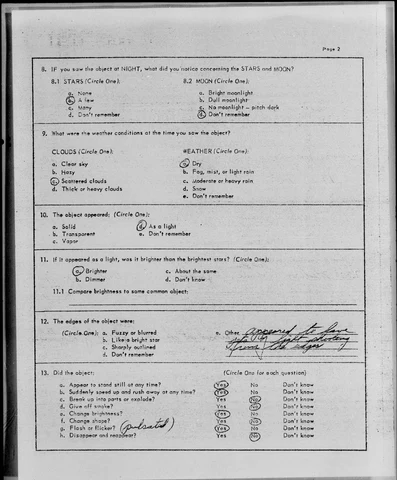 Page 2
8. IF you saw the object at NIGHT, what did you notice concerning the STARS and MOON?
8.1 STARS (Circle One): 8.2 MOON (Circle One):
a. None a. Bright moonlight
b. A few b. Dull moonlight
c. Many c. No moonlight – pitch dark
d. Don't remember d. Don't remember
9. What were the weather conditions at the time you saw the object?
CLOUDS (Circle One): WEATHER (Circle One):
a. Clear sky a. Dry
b. Hazy b. Fog, mist, or light rain
c. Scattered clouds c. Moderate or heavy rain
d. Thick or heavy clouds d. Snow
e. Don't remember
10. The object appeared: (Circle One):
a. Solid d. As a light
b. Transparent e. Don't remember
c. Vapor
11. If it appeared as a light, was it brighter than the brightest stars? (Circle One):
a. Brighter c. About the same
b. Dimmer d. Don't know
11.1 Compare brightness to some common object:
12. The edges of the object were:
(Circle One): a. Fuzzy or blurred e. Other appeared to have
b. Like a bright star light shooting
c. Sharply outlined from the edges
d. Don't remember
13. Did the object: (Circle One for each question)
a. Appear to stand still at any time? Yes No Don't know
b. Suddenly speed up and rush away at any time? Yes No Don't know
c. Break up into parts or explode? Yes No Don't know
d. Give off smoke? Yes No Don't know
e. Change brightness? Yes No Don't know
f. Change shape? Yes No Don't know
g. Flash or flicker? (pulsated) Yes No Don't know
h. Disappear and reappear? Yes No Don't know